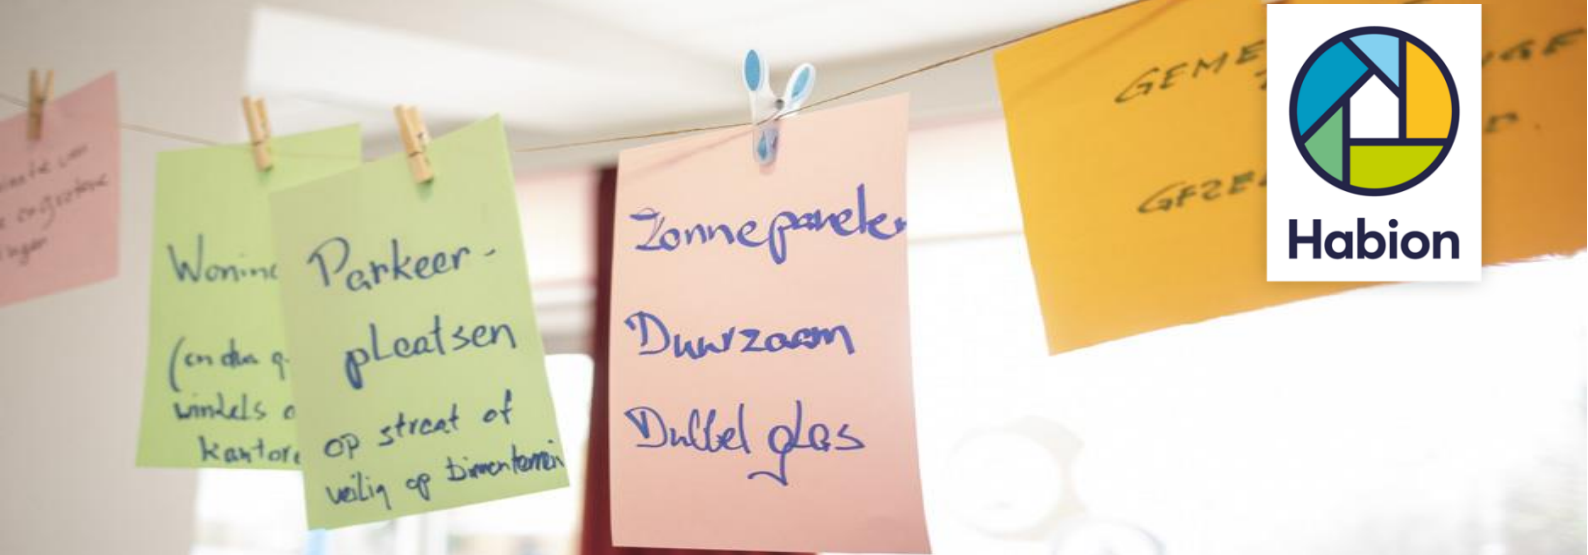 Woning
(onder
winkels
kantore
Parkeer-
plaatsen
op straat of
veilig op binnenterrein
Zonnepanelen
Duurzaam
Dubbel glas
GEME
GEZE
Habion